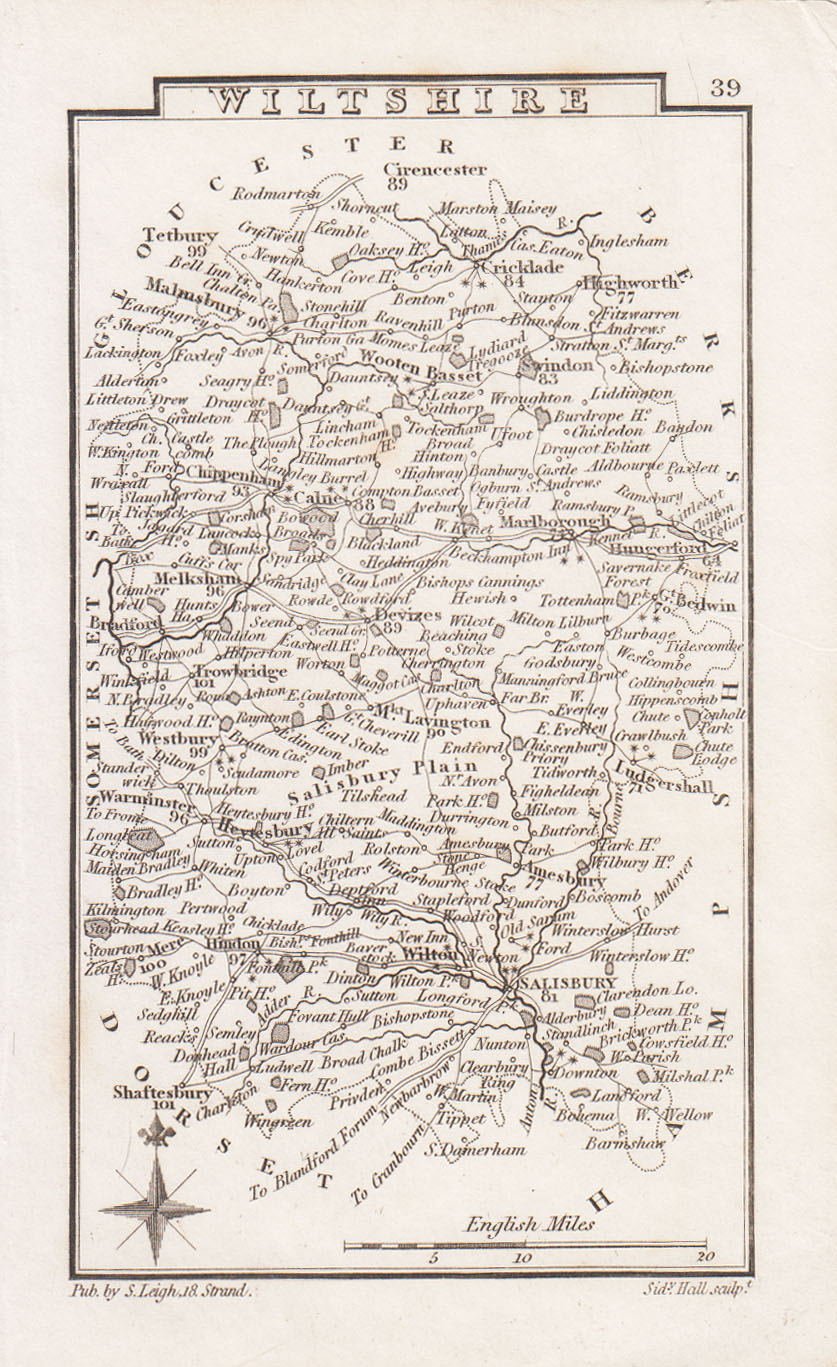 39
WILTSHIRE
GLOUCESTER
Cirencester
89
Rodmarton
Shorncut
Marston Maisey
R.
BERKSHIRE
Tetbury
99
Crudwell
Kemble
Latton
Thames
Cas. Eaton
Inglesham
Newton
Oaksey Ho.
Leigh
Cricklade
84
Bell Inn G.
Hankerton
Cove Ho.
Highworth
77
Malmsbury 96
Charlton Pa.
Stonehill
Benton
Stanton
Eastongrey
Charlton
Ravenhill
Purton
Blunsdon
Fitzwarren
St. Andrews
Gt. Sherson
Purton Ga
Momes Leaze
Lydiard
Tregooze
Stratton St. Marg.ts
Lackington
Foxley
Avon R.
Somerford
Wooten Basset
Swindon
83
Bishopstone
Alderton
Seagry Ho.
Dauntsey
S. Leaze
Wroughton
Liddington
Littleton Drew
Draycot
Ho.
Dauntsey Gt.
Salthorp
Burdrope Ho.
Nettleton
Grittleton
Lincham
Tockenham
Ufoot
Chisledon
Baydon
Ch. Castle
comb
The Plough
Tockenham
Ho.
Broad
Hinton
Draycot Foliatt
W. Kington
Hillmarton
Highway
Banbury Castle
Aldbourne
Paxlett
N.
Wraxall
Ford
Chippenham
93
Langley Burrel
Compton Basset
Ogburn St. Andrews
Slaughterford
Calne
88
Avebury
Fyfield
Ramsbury P.
Ramsbury
Littlecot
Up. Pickwick
Corsham
Bowood
Cherhill
W. Kenet
Marlborough
73
Chilton
Foliat
To
Bath
Jaggard
Ho.
Laucock
Broads
Blackland
Kennet R.
Hungerford
64
Box
Manks
Spy Park
Beckhampton Inn
Cuffs Cor
Heddington
Savernake
Forest
Froxfield
Melksham
96
Sendridge
Clay Lane
Bishops Cannings
Cumber
well
Hunts
Ha.
Bower
Rowde
Rowdford
Hewish
Tottenham Pk
Gt. Bedwin
70
Bradford
Whaddon
Seend
Seend Gr.
Devizes
89
Wilcot
Milton Lilburn
Burbage
Iford
Westwood
Hilperton
Eastwell Ho.
Potterne
Beaching
Stoke
Easton
Tidescombe
Winkfield
Trowbridge
101
Worton
Cherrington
Godsbury
Westcombe
N. Bradley
Rood
Ashton
Maggot Cas.
Charlton
Manningford Bruce
Collingbourn
E. Coulstone
Uphaven
Far Br.
W.
Everley
Hippenscomb
Haywood Ho.
Raynton
Gt. Cheverill
Mkt. Lavington
90
E. Everley
Chute
Conholt
Park
To Bath
Westbury
99
Edington
Earl Stoke
Endford
Chissenbury
Priory
Crawlbush
Chute
Lodge
Dilton
Bratton Cas.
Imber
Salisbury Plain
Tidworth
Ludgershall
71
Stander
wick
Scudamore
Nr. Avon
Thoulston
Tilshead
Park Ho.
Figheldean
Warminster
96
Heytesbury Ho.
Chiltern
All Saints
Maddington
Durrington
Milston
Bourne R.
To Frome
Heytesbury
Butford
Longleat
Sutton
Lovel
Rolston
Amesbury
Park
Park Ho.
Horsingham
Upton
Stone
Henge
Wilbury Ho.
Maiden Bradley
Whiten
Codford
St. Peters
Winterbourne Stoke
Amesbury
77
Bradley Ho.
Boyton
Deptford
Inn
Stapleford
Dunford
Boscomb
To Andover
Kilmington
Pertwood
Wily
Wily R.
Woodford
Old Sarum
Stourhead
Keasley Ho.
Chicklade
New Inn
Winterslow Hurst
Stourton
Mere
100
Hindon
97
Bish.ps Fonthill
Baver
stock
Wilton
S.
Newton
Ford
Winterslow Ho.
Zeals
Ho.
W. Knoyle
Fonthill Pk
Dinton
Wilton Pk
SALISBURY
81
E. Knoyle
Pit Ho.
Adder R.
Sutton
Longford Pk
Clarendon Lo.
Sedghill
Fovant Hull
Bishopstone
Alderbury
Dean Ho.
Reacks
Semley
Wardour Cas.
Standlinch
Brickworth Pk
Cowsfield Ho.
Donhead
Hall
Ludwell
Broad Chalk
Combe Bissett
Nunton
W. Parish
Shaftesbury
101
Fern Ho.
Clearbury
Ring
Downton
Milshal Pk
Charlton
Privden
Newbarbrow
W. Martin
Anton R.
Landford
Wingreen
To Blandford Forum
Tippet
Bohema
W. Wellow
To Cranbourn
S. Damerham
Barmshaw
DORSET
SOMERSETSH
HAMPSH
English Miles
5 10 20
Pub. by S. Leigh, 18. Strand.
Sidy. Hall sculpt.